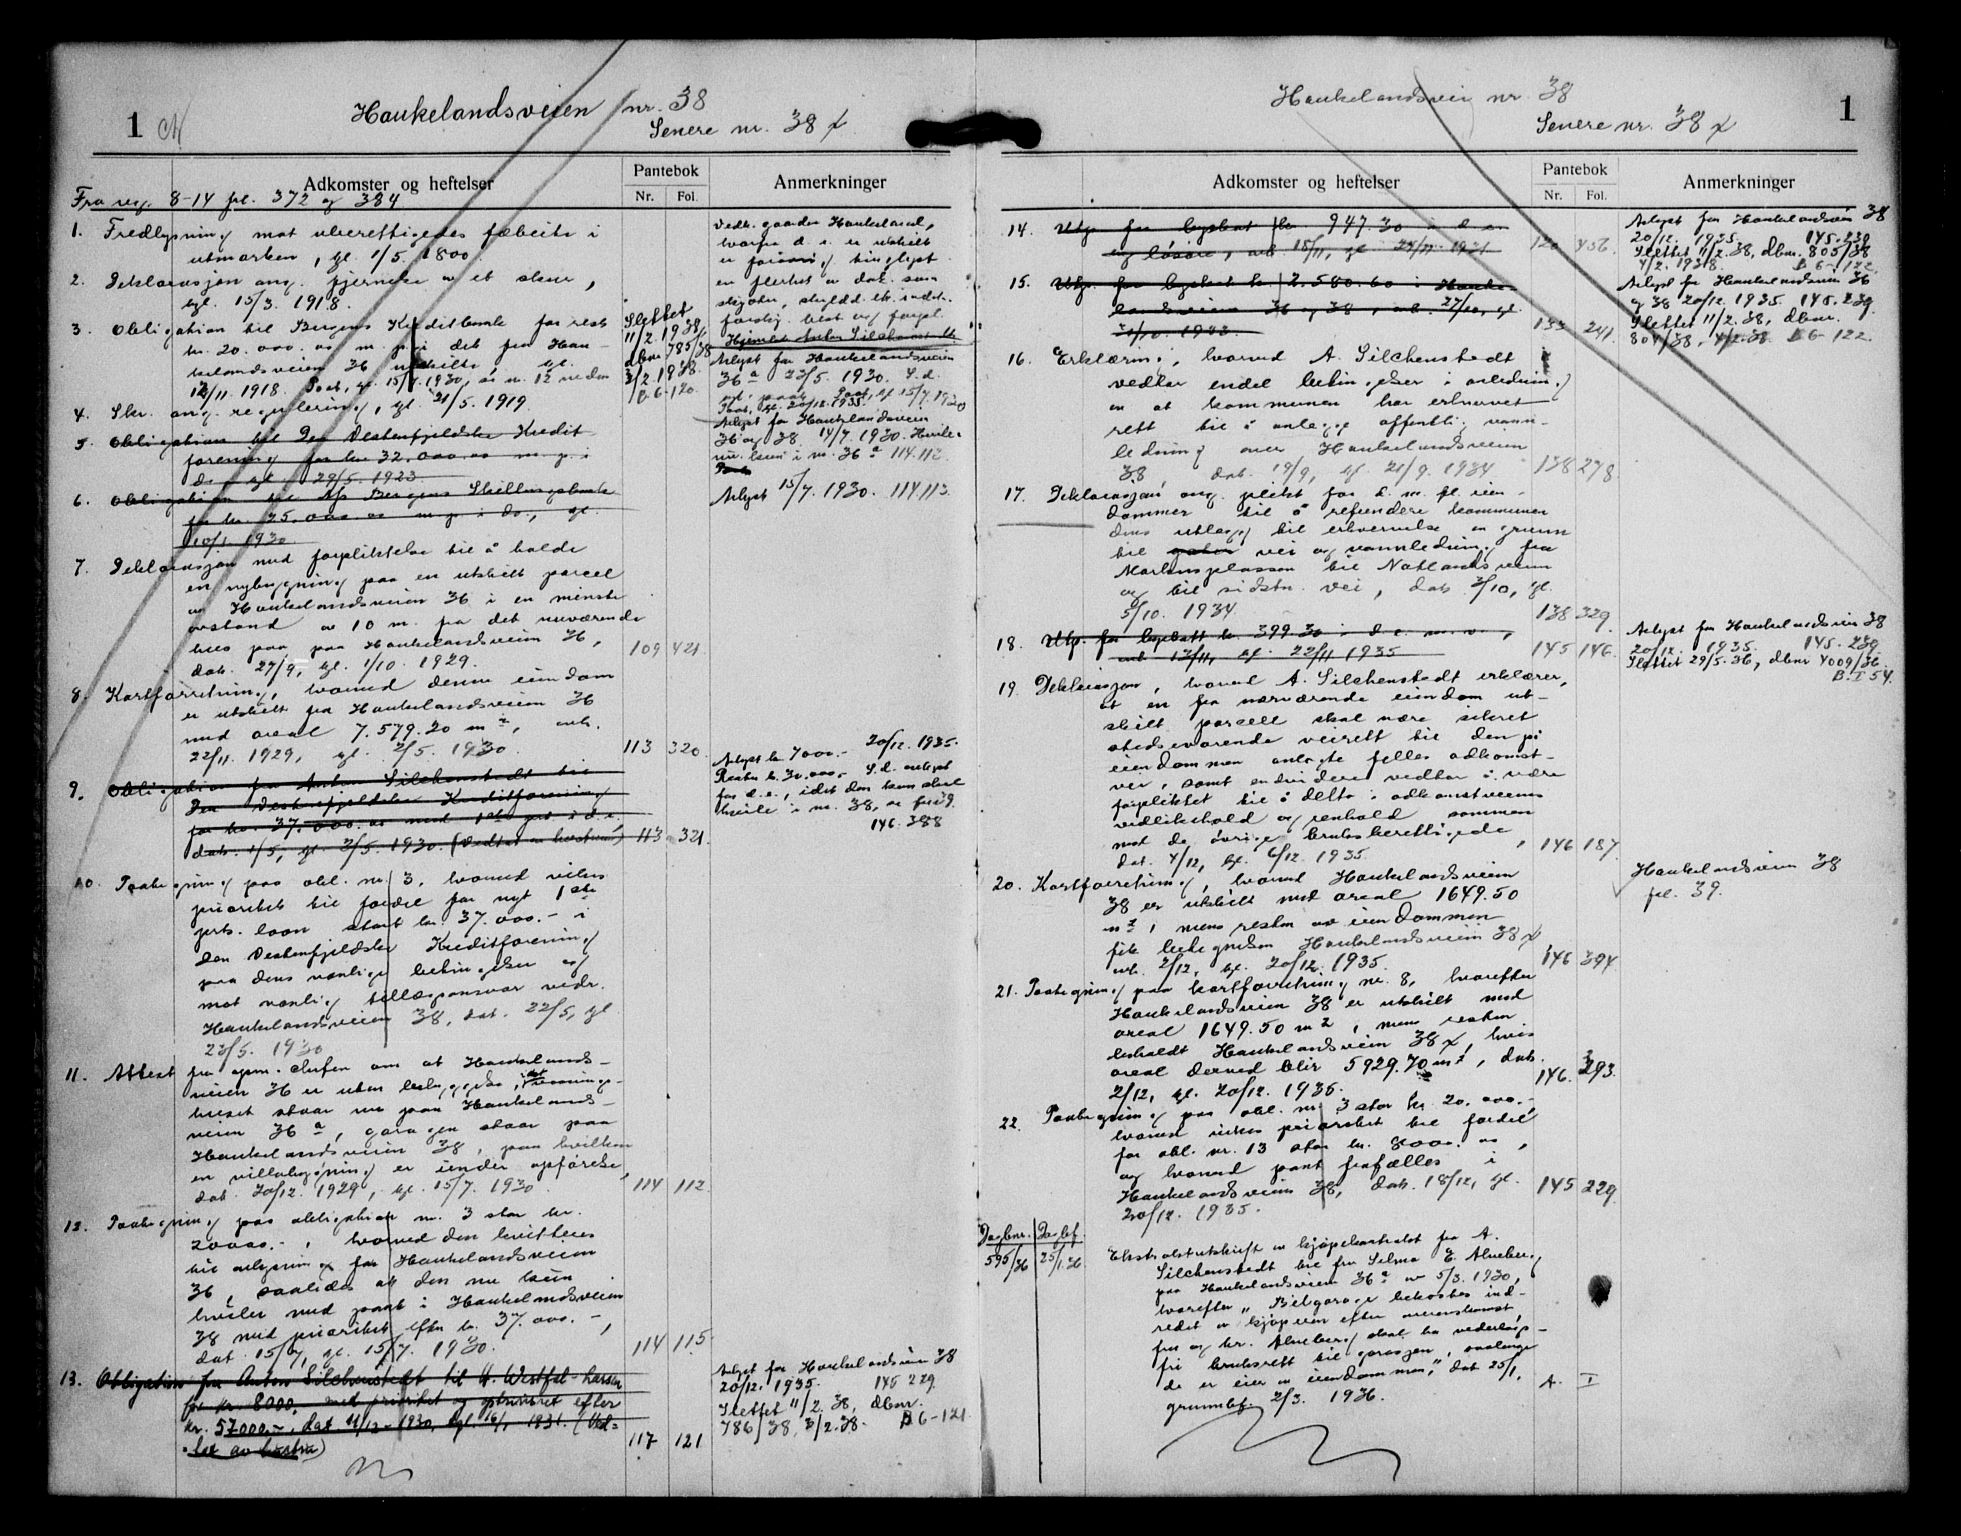 1
Haukelandsveien nr. 38
Senere nr. 38 x
Adkomster og heftelser
Pantebok
Nr. Fol.
Anmerkninger
Fra reg. 8-14 fol. 372 og 384
1. Fredlysning mot uberettigedes fæbeite i
utmarken, tgl. 1/5. 1800.
2. Deklarasjon ang. fjernelse av et skur,
tgl. 15/3. 1918.
3. Obligation til Bergens Kreditbank for rest
kr. 20.000.00 m. p. i det fra Hau-
kelandsveien 36 utskilte, tgl.
12/11 1918. Paat. tgl. 15/7. 1930, se nr. 12 neden
4. Skr. ang. regulering, tgl. 21/5. 1919.
5. Obligation til Den Vestenfjeldske Kredit-
forening for kr. 32.000.00 m. p. i
do. tgl. 29/5. 1923.
6. Obligation til A/S Bergens Skillingsbank
for kr. 25.000.00 m. p. i do., tgl.
10/1. 1930
7. Deklarasjon med forpliktelse til å holde
en nybygning paa en utskilt parcel
av Haukelandsveien 36 i en menste
avstand av 10 m. fra det nuværende
hus paa paa Haukelandsveien 36,
dat. 27/9, tgl. 1/10. 1929. 109 421.
8. Kartforretning, hvorved denne eiendom
er utskilt fra Haukelandsveien 36
med areal 7.579.20 m², avh.
22/11. 1929, tgl. 2/5. 1930. 113 320
9. Obligation fra Anton Silchenstedt til
Den Vestenfjeldske Kreditforening
for kr. 37.000.00 med 1ste prt. i d. e.
dat. 1/5, tgl. 2/5. 1930. (Vedtat av hustru) 113 321.
10. Paategning paa obl. nr. 3, hvorved vikes
prioritet til fordel for nyt 1ste
prts. laan stort kr. 37.000.- i
Den Vestenfjeldske Kreditforening
paa dens vanlige betingelser og
mot vanlig tillægsansvar vedr.
Haukelandsveien 38, dat. 22/5, tgl.
23/5. 1930
11. Attest fra opm. chefen om at Haukelands-
veien 36 er uten bebyggelse, idet vaanings-
huset staar nu paa Haukelands-
veien 36 a, garagen staar paa
Haukelandsveien 38, paa hvilken
en villabygning er under opførelse,
dat. 20/12. 1929, tgl. 15/7. 1930. 114 112.
12. Paategning paa obligation nr. 3 stor kr.
20000.-, hvorved den kvitteres
til avlysning for Haukelandsveien
36, saaledes at den nu kun
hviler med pant i Haukelandsveien
38 med prioritet efter kr. 37.000.-,
dat. 15/7, tgl. 15/7. 1930. 114 115
13. Obligation fra Anton Silchenstedt til H. Westfal-Larsen
for kr. 8000,- med prioritet og opt. rett efter
kr. 57000.-, dat. 11/12 - 1930, tgl. 16/1 1931. (Ved-
tat av hustru) 117 121
Vedk. gaarden Haukeland,
hvorfra d. e. er utskilt
er forøvrig tinglyst
en flerhet av dok. som
skjøter, skyldd. etc. vedk.
forskj. best. og forpl.
Hjemlet Anton Silchenstedt
Slettet
11/2. 1938,
dbnr. 785/38
3/2. 1938.
B 6-120.
Avlyst for Haukelandsveien
36 a 23/5. 1930. S. d.
ogs. paat.
Paat. tgl. 15/7. 1930
Paat. tgl. 20/12. 1935.
Avlyst for Haukelandsveien
36 og 38 14/7. 1930. Hviler
nu kun i nr. 36 a 114.112.
Avlyst 15/7. 1930. 114.113.
Avlyst kr. 7000.- 20/12. 1935.
Resten kr. 30.000.- S. d. avlyst
for d. e., idet den kun skal
hvile i nr. 38, se fol 39.
146. 388
Avlyst for Haukelandsveien 38
20/12. 1935. 145 229.
Slettet 11/2. 38, dbnr.
786/38, 3/2. 38. B 6-121.
Haukelandsvei nr. 38
Senere nr. 38 x
1
Adkomster og heftelser
Pantebok
Nr. Fol.
Anmerkninger
14. Utp. for byskat kr. 947.30 i d. e.
og løsøre, avh. 18/11, tgl. 24/11. 1931 120 456.
15. Utp. for byskat kr. 2.580.60 i Hauke-
landsveien 36 og 38, avh. 27/10, tgl.
31/10. 1933 133 241.
16. Erklæring, hvorved A. Silchenstedt
vedtar endel betingelser i anledning
av at kommunen har erhvervet
rett til å anlegge offentlig vann-
ledning over Haukelandsveien
38 dat. 19/9, tgl. 21/9. 1934 138 278.
17. Deklarasjon ang. plikt for d. m. fl. eien-
dommer til å refundere kommunen
dens utlegg til erhvervelse av grunn
til gaten vei og vannledning fra
Martensplassen til Natlandsveien
og til sidstn. vei, dat. 3/10, tgl.
5/10. 1934. 138 329.
18. Utp. for byskatt kr. 399.30 i d. e. m. v.,
avh. 13/11, tgl. 22/11 1935 145 146.
19. Deklarasjon, hvorved A. Silchenstedt erklærer,
at en fra nærværende eiendom ut-
skilt parcell skal være sikret
stedsevarende veirett til den på
eiendommen anlagte felles adkomst-
vei, samt endvidere vedtar å være
forpliktet til å delta i adkomstveiens
vedlikehold og renhold sammen
med de øvrige bruksberettigede,
dat. 4/12, tgl. 6/12. 1935. 146 187.
20. Kartforretning, hvorved Haukelandsveien
38 er utskilt med areal 1649.50
m², mens resten av eiendommen
fikk betegnelsen Haukelandsveien 38 x
avh. 2/12, tgl. 20/12. 1935. 146 394
21. Paategning paa kartforretning nr. 8, hvorefter
Haukelandsveien 38 er utskilt med
areal 1649.50 m2, mens resten
beholdt Haukelandsveien 38 x, hvis
areal derved blir 5929.70 m², dat.
2/12, tgl. 20/12. 1935. 146. 393.
22. Paategning paa obl. nr. 3 stor kr. 20.000.-,
hvorved vikes prioritet til fordel
for obl. nr. 13 stor kr. 8000.00,
og hvorved pant frafalles i
Haukelandsveien 38, dat. 18/12, tgl.
20/12. 1935. 145 229.
Dagbnr. Dagbf.
595/36 25/1. 36.
Ekstraktutskrift av kjøpekontrakt fra A.
Silchenstedt til fru Selma E. Alneberg
paa Haukelandsveien 36 a av 5/3. 1930,
hvorefter "Bilgarage bekostes ind-
redet av kjøperen efter overenskomst
fru og hr. Alneberg skal ha vederlags-
fri bruksrett til garasjen, saalenge
de er eier av eiendommen", dat. 25/1,
grunnbf. 2/3. 1936. A. I
Avlyst for Haukelandsveien 38
20/12. 1935. 145.230
Slettet 11/2. 38, dbnr. 805/38
4/2. 1938. B 6-122.
Avlyst for Haukelandsveien 36
og 38 20/12. 1935. 145.239.
Slettet 11/2. 38, dbnr.
804/38, 4/2. 38. B 6-122.
Avlyst for Haukelandsveien 38
20/12. 1935. 145. 239.
Slettet 29/5. 36, dbnr 4009/36
B. I 54.
Haukelandsveien 38
fol. 39.